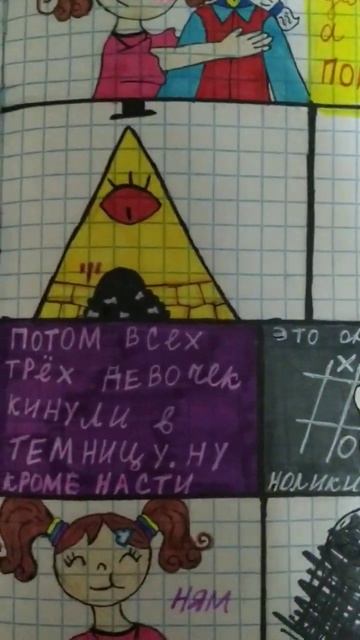 а
ПО
ПОТОМ ВСЕХ
ТРЁХ ДЕВОЧЕК
КИНУЛИ в
ТЕМНИЦУ. НУ
КРОМЕ НАСТИ
ЭТО
X
O
НОЛИКИ
НЯМ